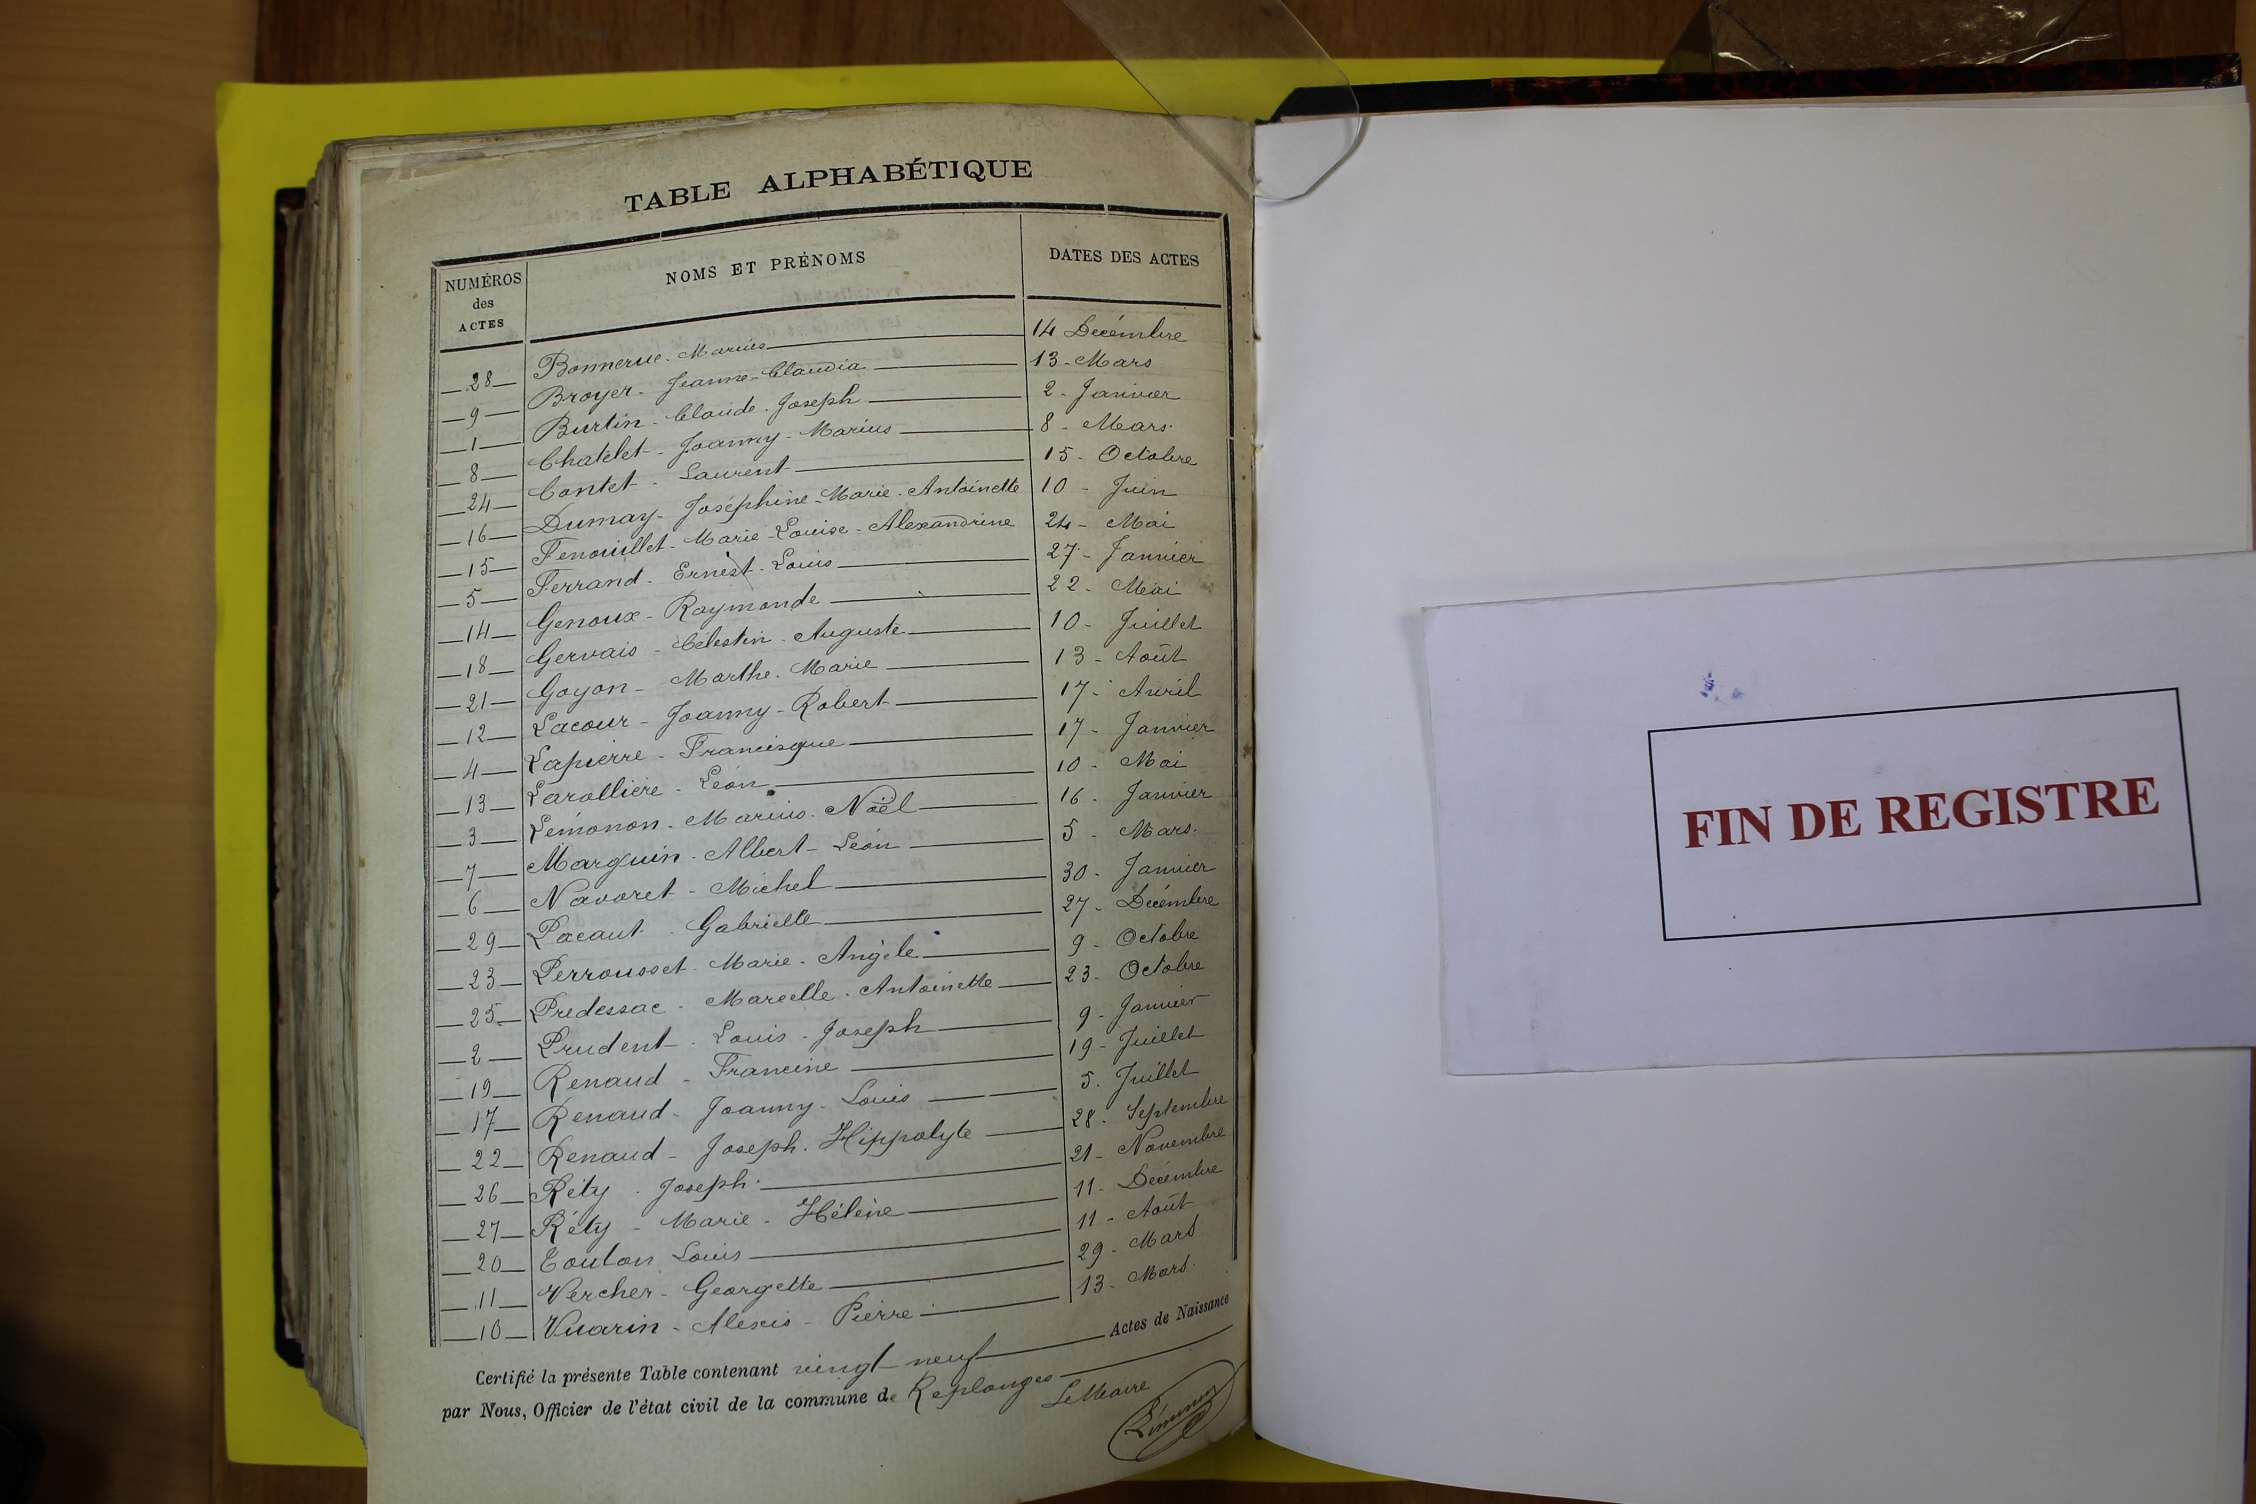 TABLE ALPHABÉTIQUE
NUMÉROS des ACTES NOMS ET PRÉNOMS DATES DES ACTES
28 Bonnerue - Marius 14 Decémbre
9 Broyer - Jeanne - Claudia 13 - Mars
1 Burtin - Claude - Joseph 2 - Janvier
8 Chatelet - Joanny - Marius 8 - Mars
24 Contet - Laurent 15 - Octobre
16 Dumay - Joséphine - Marie - Antoinette 10 - Juin
15 Fenouillet - Marie - Louise - Alexandrine 24 - Mai
5 Ferrand - Ernest - Louis 27 - Janvier
14 Genoux - Raymonde 22 - Mai
18 Gervais - Célestin - Auguste 10 - Juillet
21 Goyon - Marthe - Marie 13 - Août
12 Lacour - Joanny - Robert 17 - Avril
4 Lapierre - Francisque 17 - Janvier
13 Larollière - Léon 10 - Mai
3 Lémonon - Marius - Noël 16 - Janvier
7 Marguin - Albert - Léon 5 - Mars
6 Navoret - Michel 30 - Janvier
29 Pacaut - Gabrielle 27 - Decémbre
23 Perrousset - Marie - Angèle 9 - Octobre
25 Predessac - Marcelle - Antoinette 23 - Octobre
2 Prudent - Louis - Joseph 9 - Janvier
19 Renaud - Francine 19 - Juillet
17 Renaud - Joanny - Louis 5 - Juillet
22 Renaud - Joseph - Hippolyte 28 - Septembre
26 Réty - Joseph 21 - Novembre
27 Réty - Marie - Hélène 11 - Decémbre
20 Toulon Louis 11 - Août
11 Vercher - Georgette 29 - Mars
10 Vuarin - Alexis - Pierre 13 - Mars
Certifié la présente Table contenant vingt neuf Actes de Naissance
par Nous, Officier de l'état civil de la commune de Replonges
Le Maire
Lémonon
FIN DE REGISTRE